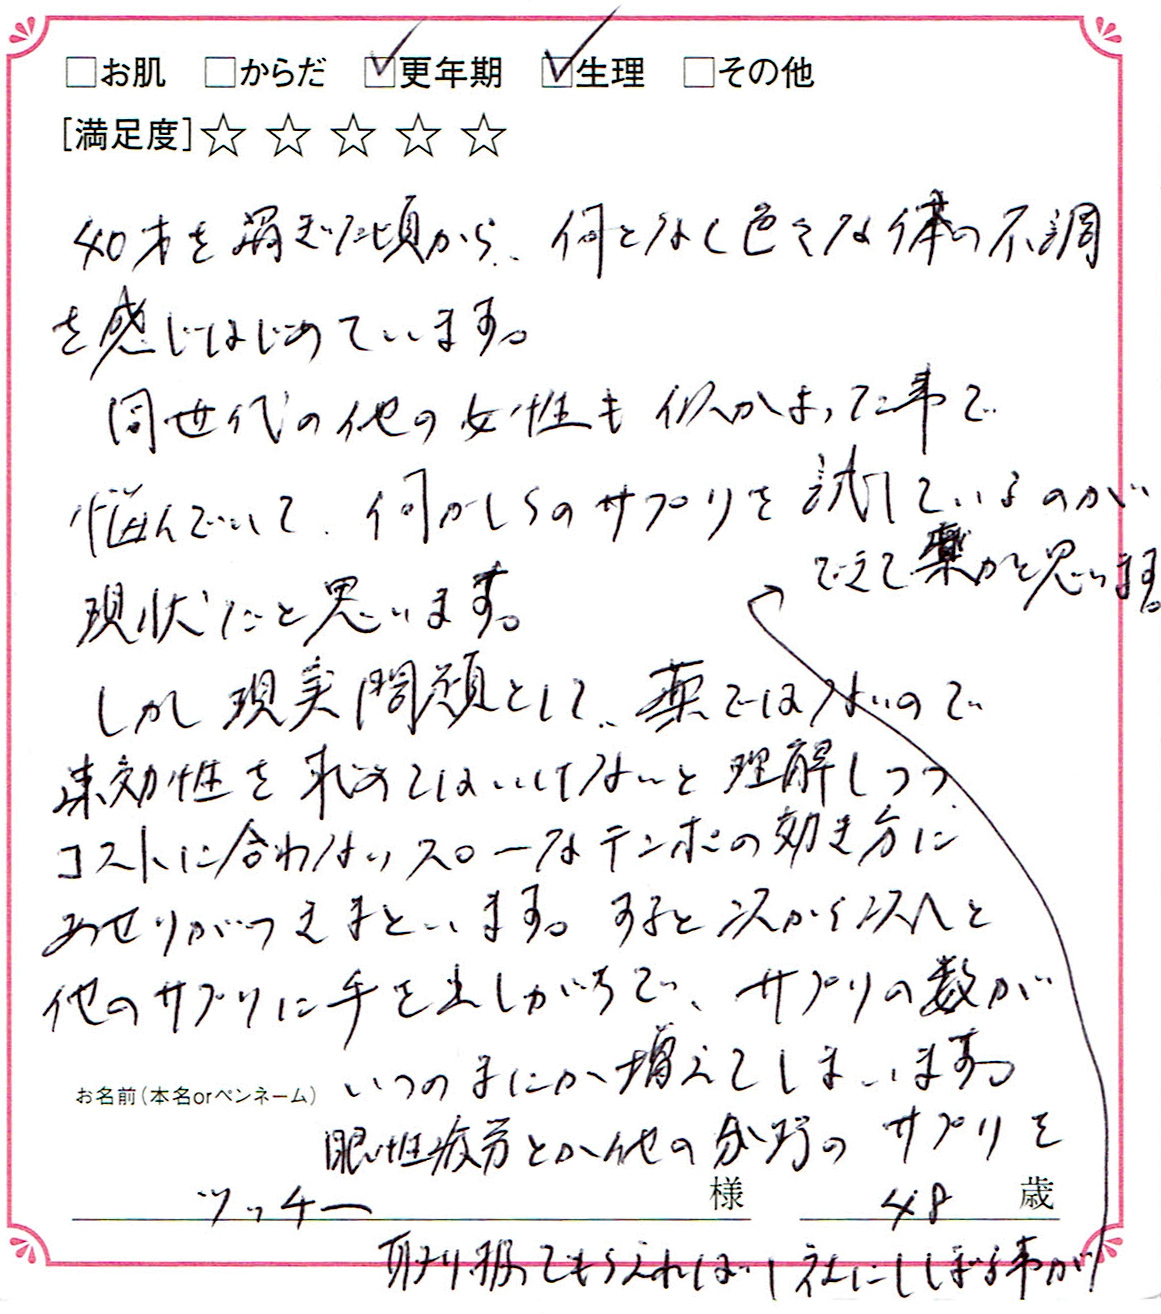 □お肌 □からだ ☑更年期 ☑生理 □その他
[満足度]☆ ☆ ☆ ☆ ☆
40才を過ぎた頃から、何となく色々な体の不調
を感じはじめています。
同世代の他の女性も似かよった事で
悩んでいて、何かしらのサプリを試しているのが
現状だと思います。
しかし現実問題として、薬ではないので
速効性を求めてはいけないと理解しつつ、
コストに合わないスローなテンポの効き方に
あせりがつきまといます。すると次から次へと
他のサプリに手を出しがちで、サプリの数が
いつのまにか増えてしまいます。
眼性疲労とか他の分野のサプリを
取り扱ってもらえれば1社にしぼる事が
できて楽かと思います。
お名前(本名orペンネーム)
ツッチー 様 48 歳